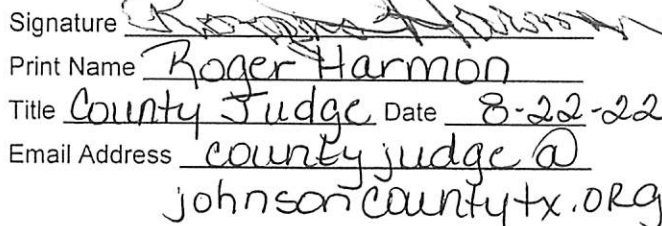 Signature Roger Harmon
Print Name Roger Harmon
Title County Judge Date 8-22-22
Email Address countyjudge@
johnsoncountytx.org